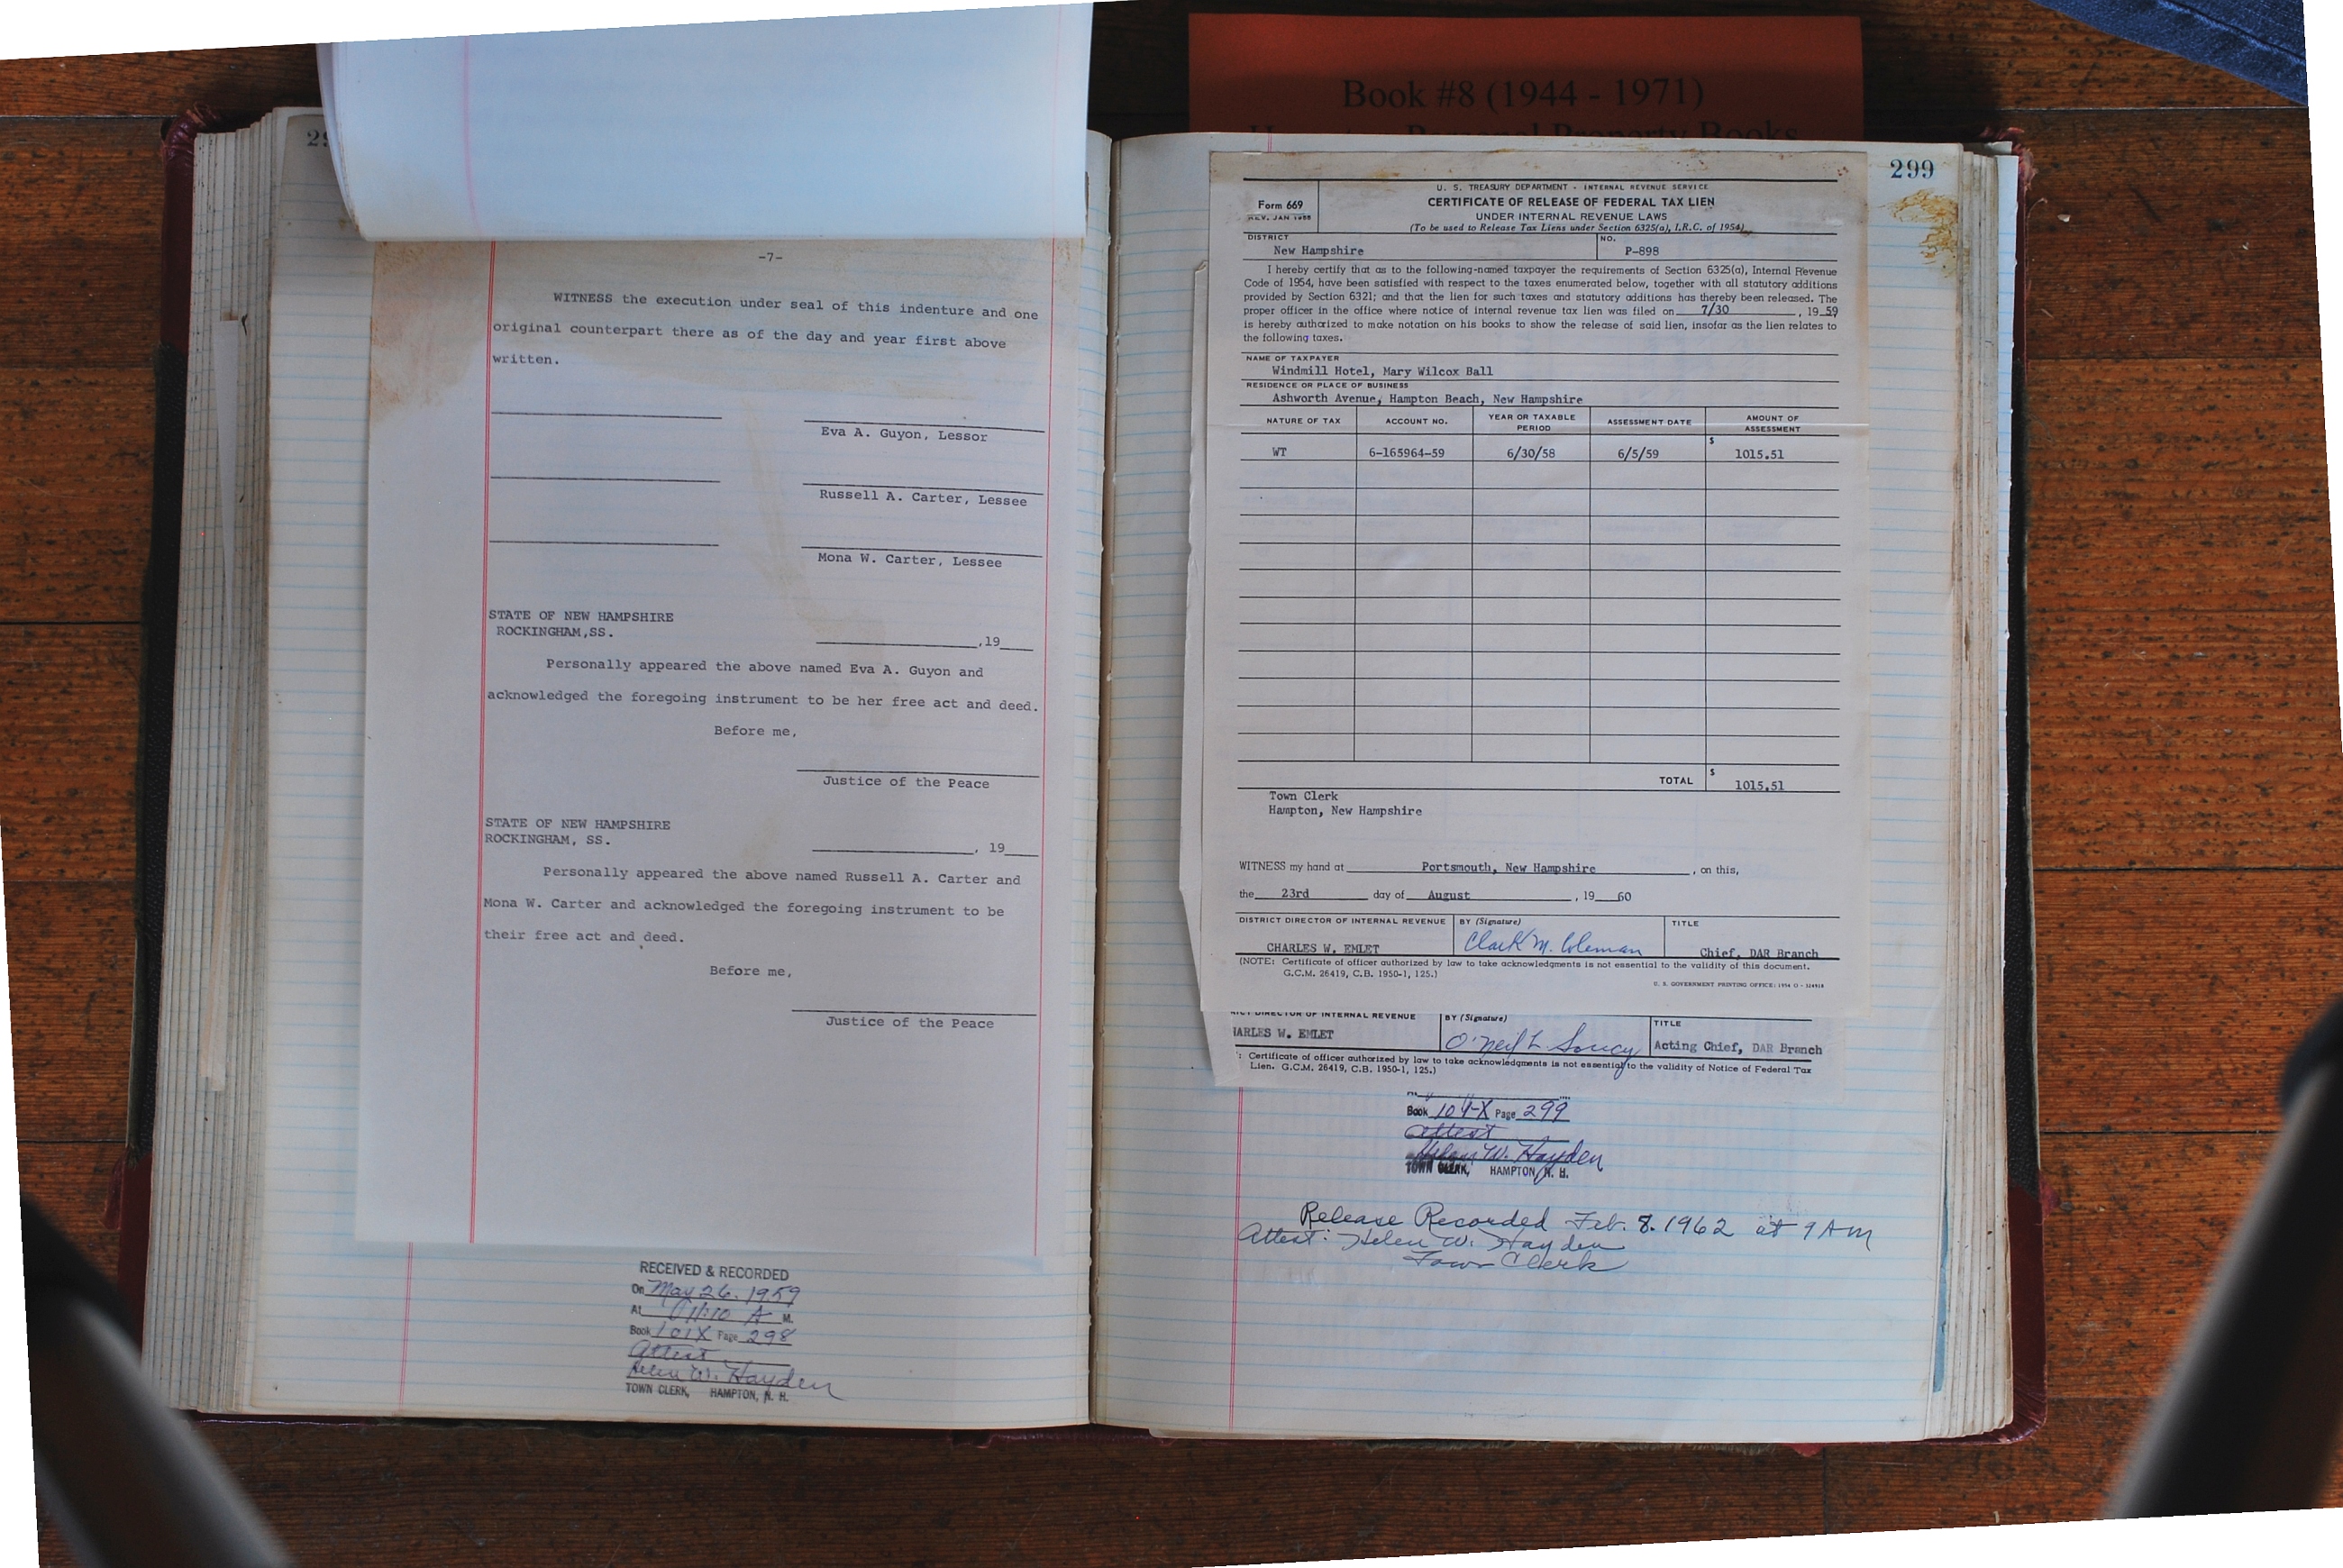 Book #8 (1944 - 1971)
Personal Property Books
-7-
WITNESS the execution under seal of this indenture and one
original counterpart there as of the day and year first above
written.
Eva A. Guyon, Lessor
Russell A. Carter, Lessee
Mona W. Carter, Lessee
STATE OF NEW HAMPSHIRE
ROCKINGHAM,SS.
,19
Personally appeared the above named Eva A. Guyon and
acknowledged the foregoing instrument to be her free act and deed.
Before me,
Justice of the Peace
STATE OF NEW HAMPSHIRE
ROCKINGHAM, SS.
, 19
Personally appeared the above named Russell A. Carter and
Mona W. Carter and acknowledged the foregoing instrument to be
their free act and deed.
Before me,
Justice of the Peace
RECEIVED & RECORDED
On May 26. 1959
At 11:10 A M.
Book 101X Page 298
Attest
Helen W. Hayden
TOWN CLERK, HAMPTON, N. H.
299
U. S. TREASURY DEPARTMENT - INTERNAL REVENUE SERVICE
Form 669
REV. JAN 1955
CERTIFICATE OF RELEASE OF FEDERAL TAX LIEN
UNDER INTERNAL REVENUE LAWS
(To be used to Release Tax Liens under Section 6325(a), I.R.C. of 1954)
DISTRICT
New Hampshire
NO.
P-898
I hereby certify that as to the following-named taxpayer the requirements of Section 6325(a), Internal Revenue
Code of 1954, have been satisfied with respect to the taxes enumerated below, together with all statutory additions
provided by Section 6321; and that the lien for such taxes and statutory additions has thereby been released. The
proper officer in the office where notice of internal revenue tax lien was filed on 7/30, 19 59
is hereby authorized to make notation on his books to show the release of said lien, insofar as the lien relates to
the following taxes.
NAME OF TAXPAYER
Windmill Hotel, Mary Wilcox Ball
RESIDENCE OR PLACE OF BUSINESS
Ashworth Avenue, Hampton Beach, New Hampshire
NATURE OF TAX ACCOUNT NO. YEAR OR TAXABLE PERIOD ASSESSMENT DATE AMOUNT OF ASSESSMENT
WT 6-165964-59 6/30/58 6/5/59 $ 1015.51
TOTAL $ 1015.51
Town Clerk
Hampton, New Hampshire
WITNESS my hand at Portsmouth, New Hampshire, on this,
the 23rd day of August, 19 60
DISTRICT DIRECTOR OF INTERNAL REVENUE BY (Signature) TITLE
CHARLES W. EMLET Clark M. Coleman Chief, DAR Branch
(NOTE: Certificate of officer authorized by law to take acknowledgments is not essential to the validity of this document.
G.C.M. 26419, C.B. 1950-1, 125.)
U. S. GOVERNMENT PRINTING OFFICE: 1954 O - 324918
DIRECTOR OF INTERNAL REVENUE BY (Signature) TITLE
HARLES W. EMLET O'Neil L. Soucy Acting Chief, DAR Branch
: Certificate of officer authorized by law to take acknowledgments is not essential to the validity of Notice of Federal Tax
Lien. G.C.M. 26419, C.B. 1950-1, 125.)
Book 101-X Page 299
Attest
Helen W. Hayden
TOWN CLERK, HAMPTON, N. H.
Release Recorded Feb. 8. 1962 at 9 AM
Attest: Helen W. Hayden
Town Clerk